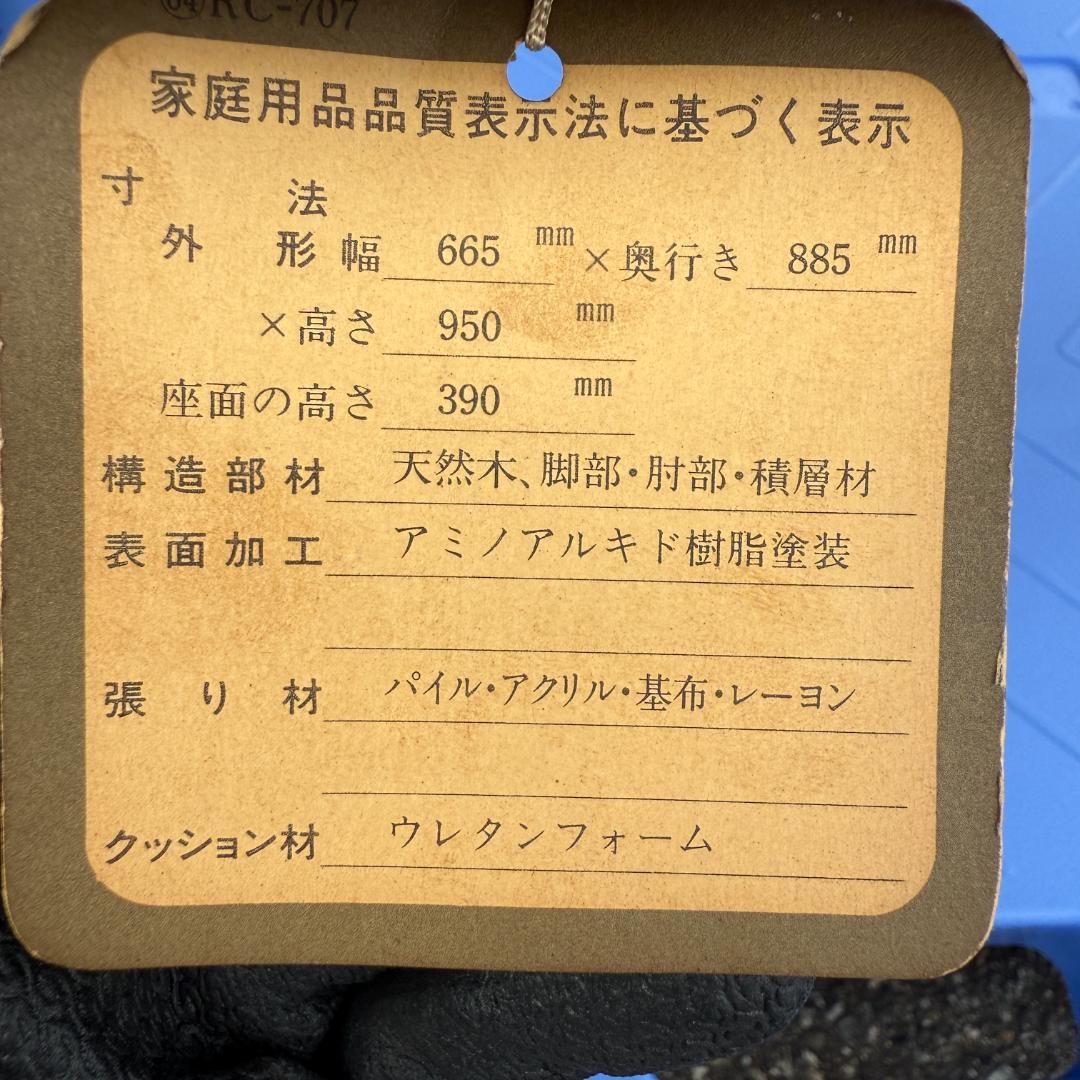 ㊿RC-707
家庭用品品質表示法に基づく表示
寸法
外形 幅 665 mm × 奥行き 885 mm
× 高さ 950 mm
座面の高さ 390 mm
構造部材 天然木、脚部・肘部・積層材
表面加工 アミノアルキド樹脂塗装
張り材 パイル・アクリル・基布・レーヨン
クッション材 ウレタンフォーム